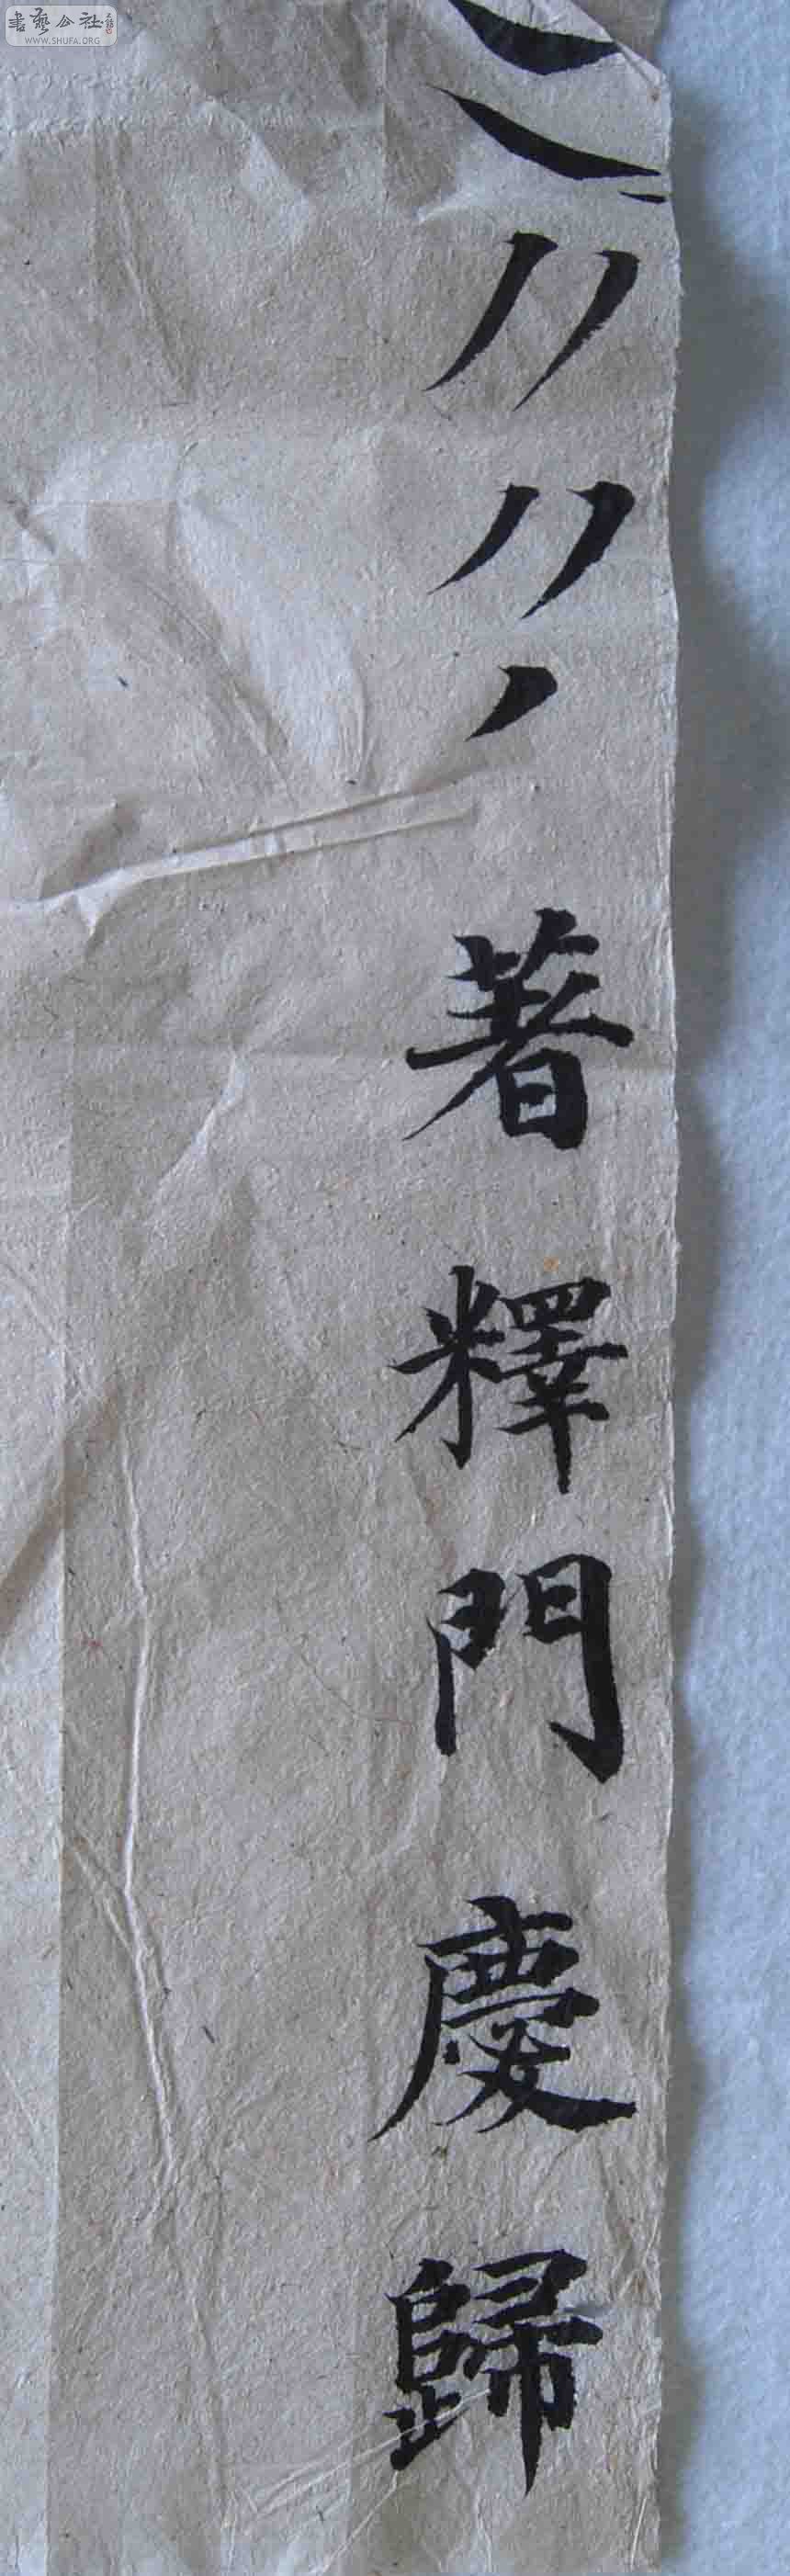 書藝公社
WWW.SHUFA.ORG
著釋門慶歸